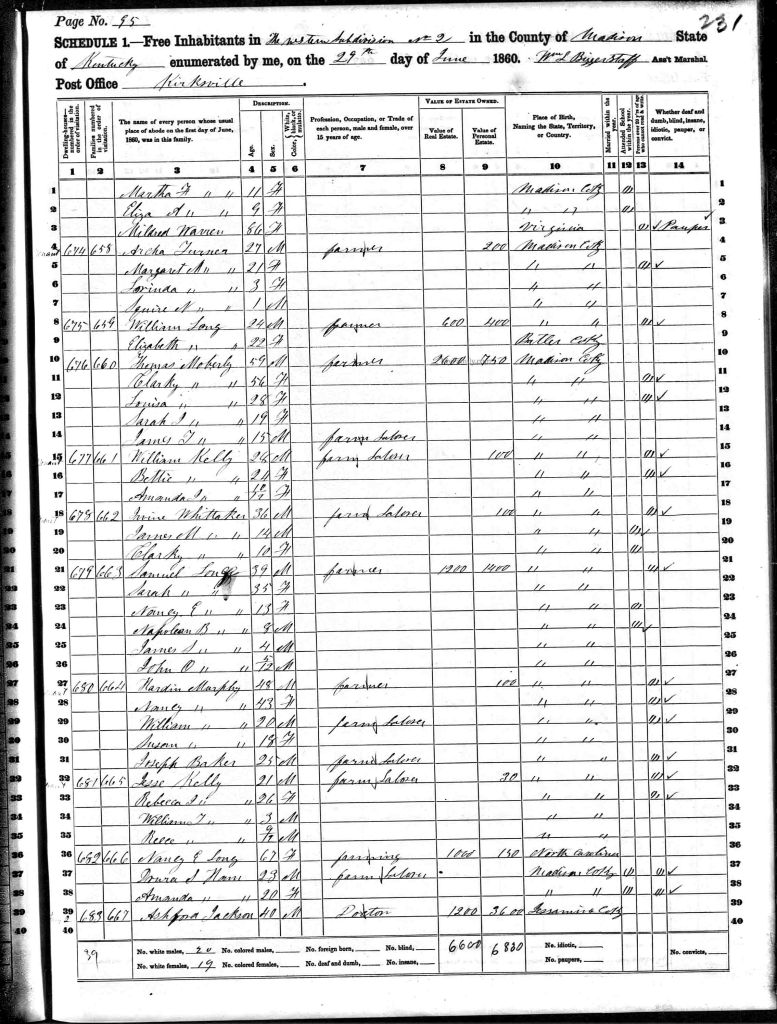 Page No. 95
231
SCHEDULE 1.—Free Inhabitants in The western Subdivision No 2 in the County of Madison State
of Kentucky enumerated by me, on the 29th day of June 1860. Wm L Biggerstaff Ass't Marshal
Post Office Kirksville.
DESCRIPTION. VALUE OF ESTATE OWNED.
Dwelling-houses—numbered in the order of visitation. Families numbered in the order of visitation. The name of every person whose usual place of abode on the first day of June, 1860, was in this family. Age. Sex. Color, White, black, or mulatto. Profession, Occupation, or Trade of each person, male and female, over 15 years of age. Value of Real Estate. Value of Personal Estate. Place of Birth, Naming the State, Territory, or Country. Married within the year. Attended School within the year. Persons over 20 y'rs of age who cannot read & write. Whether deaf and dumb, blind, insane, idiotic, pauper, or convict.
1 2 3 4 5 6 7 8 9 10 11 12 13 14
1 Martha F " " 11 F Madison Co Ky 1
2 Eliza A " " 9 F " " 2
3 Mildred Warren 86 F Virginia Pauper 3
4 674 658 Archa Turner 27 M farmer 200 Madison Co Ky 4
5 Margaret A " " 21 F " " 5
6 Lorinda " " 3 F " " 6
7 Squire N " " 1 M " " 7
8 675 659 William Long 24 M farmer 600 400 " " 8
9 Elizabeth " " 22 F Butler Co Ky 9
10 676 660 Thomas Moberly 59 M farmer 2600 750 Madison Co Ky 10
11 Clarky " " 56 F " " 11
12 Louisa " " 28 F " " 12
13 Sarah J " " 19 F " " 13
14 James T " " 15 M farm Laborer " " 14
15 677 661 William Kelly 26 M farm Laborer 100 " " 15
16 Bettie " " 24 F " " 16
17 Amanda J " " F " " 17
18 678 662 Irvine Whittaker 36 M farm Laborer 100 " " 18
19 James M " " 14 M " " 19
20 Clarky " " 10 F " " 20
21 679 663 Samuel Long 39 M farmer 1200 1400 " " 21
22 Sarah " " 35 F " " 22
23 Nancy E " " 13 F " " 23
24 Napoleon B " " 8 M " " 24
25 James S " " 4 M " " 25
26 John O " " 5/12 M " " 26
27 680 664 Hardin Murphy 48 M farmer 100 " " 27
28 Nancy " " 43 F " " 28
29 William " " 20 M farm Laborer " " 29
30 Susan " " 18 F 30
31 Joseph Baker 25 M farm Laborer " " 31
32 681 665 Jesse Kelly 21 M farm Laborer 30 " " 32
33 Rebecca J " " 26 F " " 33
34 William T " " 3 M " " 34
35 Reece " " 9/12 M " " 35
36 682 666 Nancy E Long 67 F farming 1000 150 North Carolina 36
37 23 M farm Laborer Madison Co Ky 37
38 Amanda " " 20 F " " 38
39 683 667 Ashford Jackson 40 M Doctor 1200 3600 Jessamine Co Ky 39
40 40
39 No. white males, 20 No. colored males, No. foreign born, No. blind, 6600 6830 No. idiotic,
No. white females, 19 No. colored females, No. deaf and dumb, No. insane, No. paupers, No. convicts,